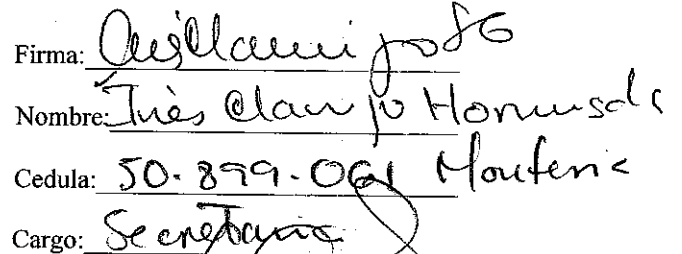 Firma:
Nombre: Inés Clavijo
Cedula: 50.899.061 Monteria
Cargo: Secretaria